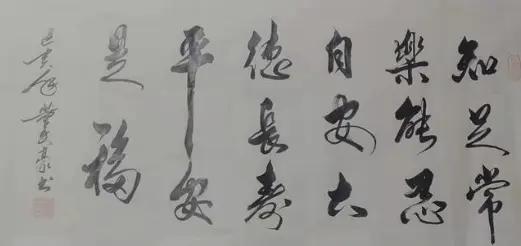 知足常
樂能忍
自安大
德長壽
平安
是福
己亥
書